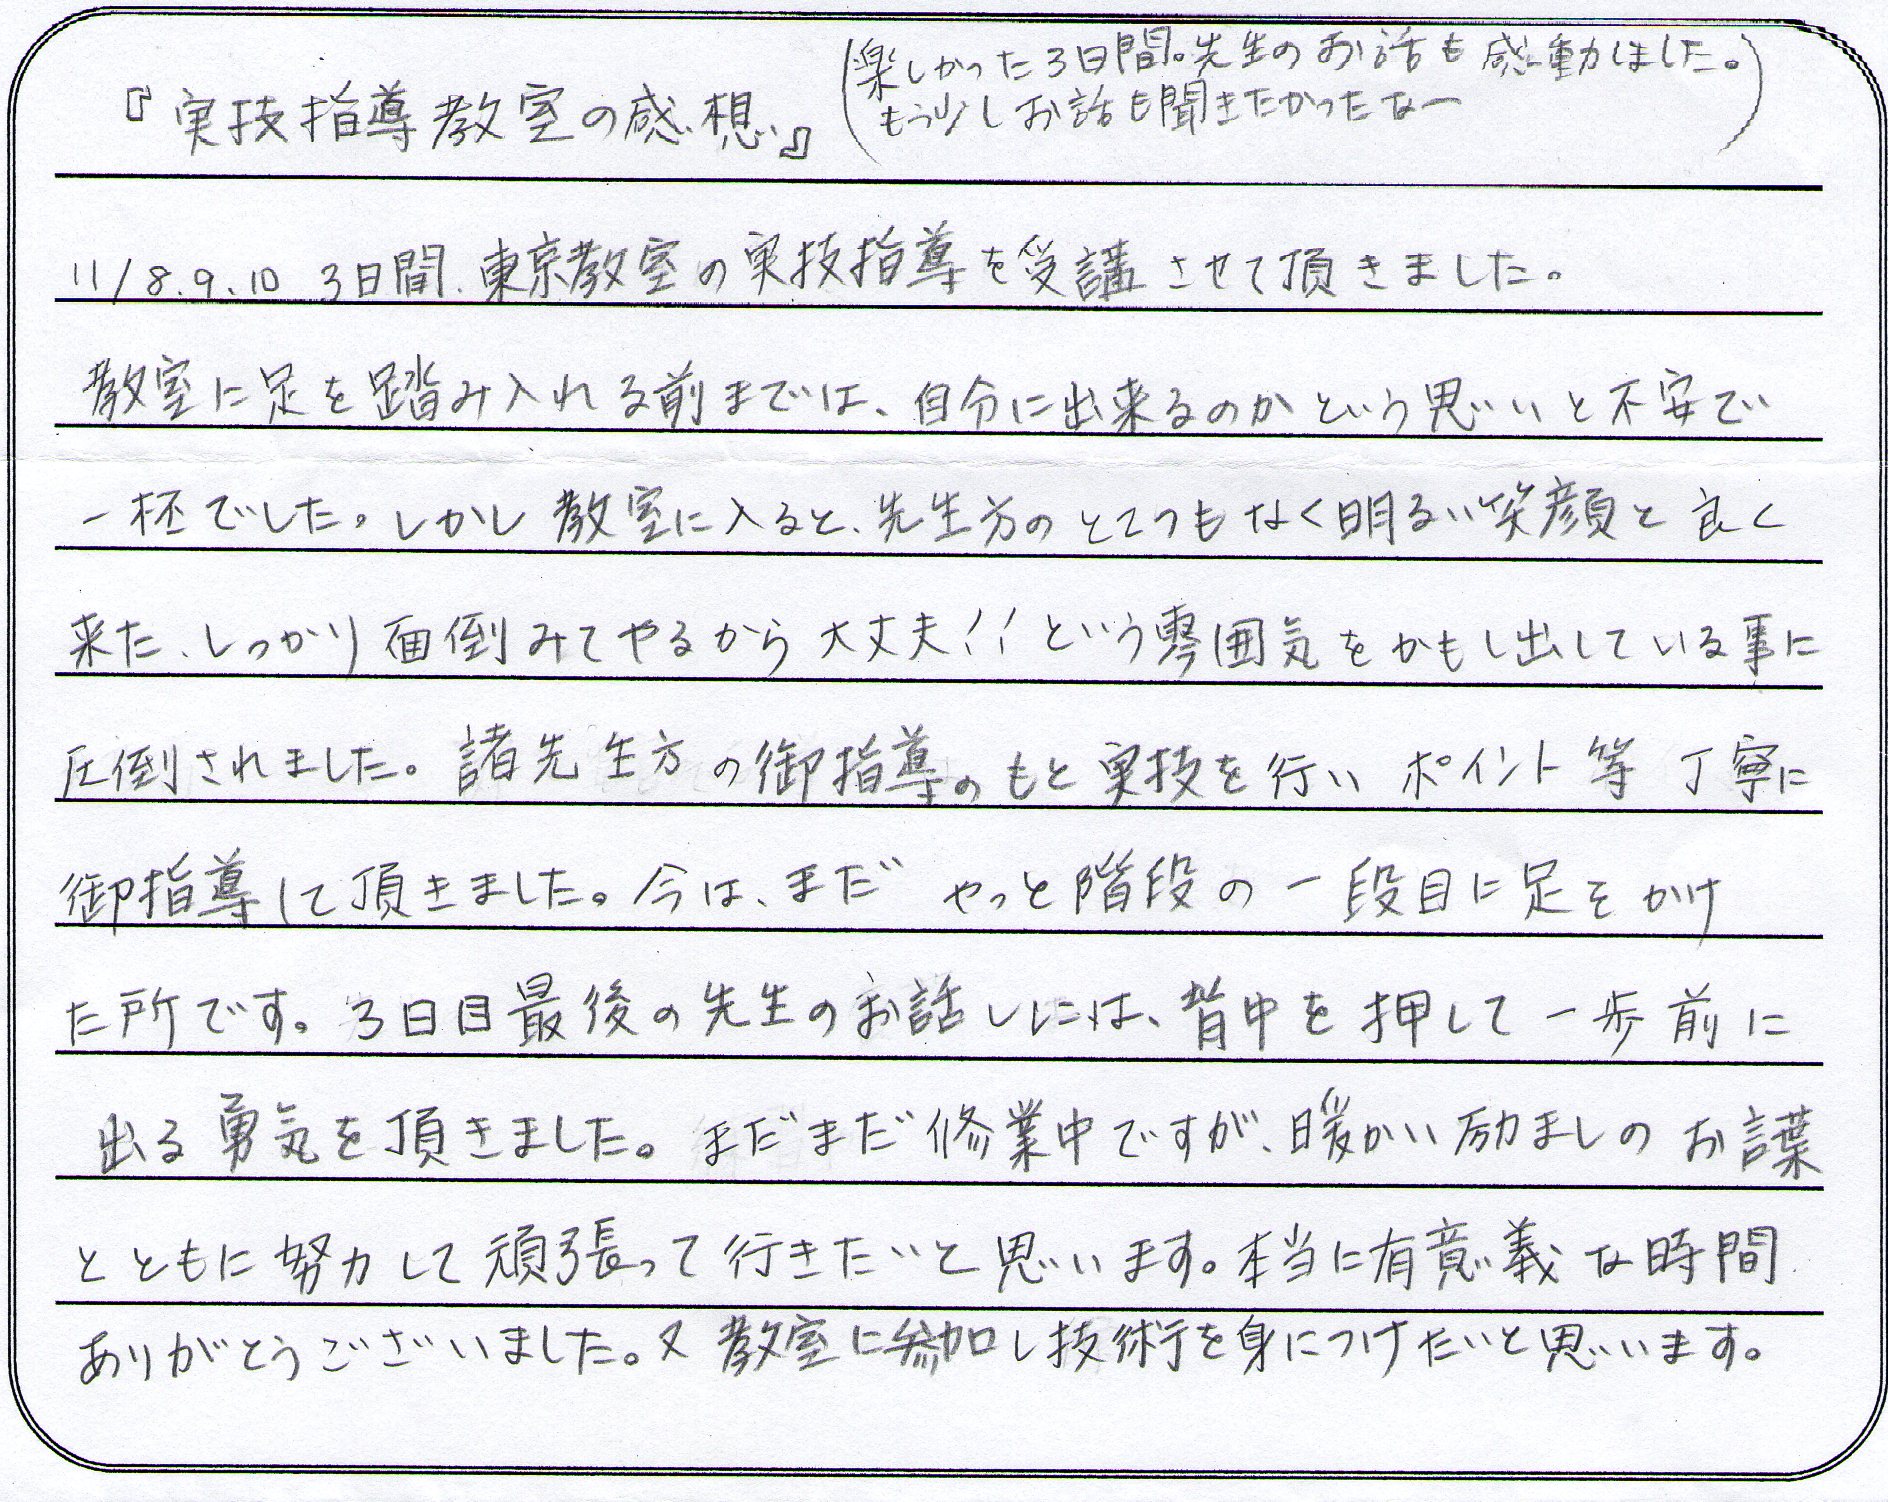 『実技指導教室の感想』
(楽しかった3日間。先生のお話も感動しました。
もう少しお話も聞きたかったなー)
11/8.9.10 3日間、東京教室の実技指導を受講させて頂きました。
教室に足を踏み入れる前までは、自分に出来るのかという思いと不安で
一杯でした。しかし教室に入ると、先生方のとてつもなく明るい笑顔と良く
来た、しっかり面倒みてやるから大丈夫!!という雰囲気をかもし出している事に
圧倒されました。諸先生方の御指導のもと実技を行い ポイント等 丁寧に
御指導して頂きました。今は、まだ やっと階段の一段目に足をかけ
た所です。3日目最後の先生のお話しには、背中を押して一歩前に
出る勇気を頂きました。まだまだ修業中ですが、暖かい励ましのお言葉
とともに努力して頑張って行きたいと思います。本当に有意義な時間
ありがとうございました。又教室に参加し技術を身につけたいと思います。